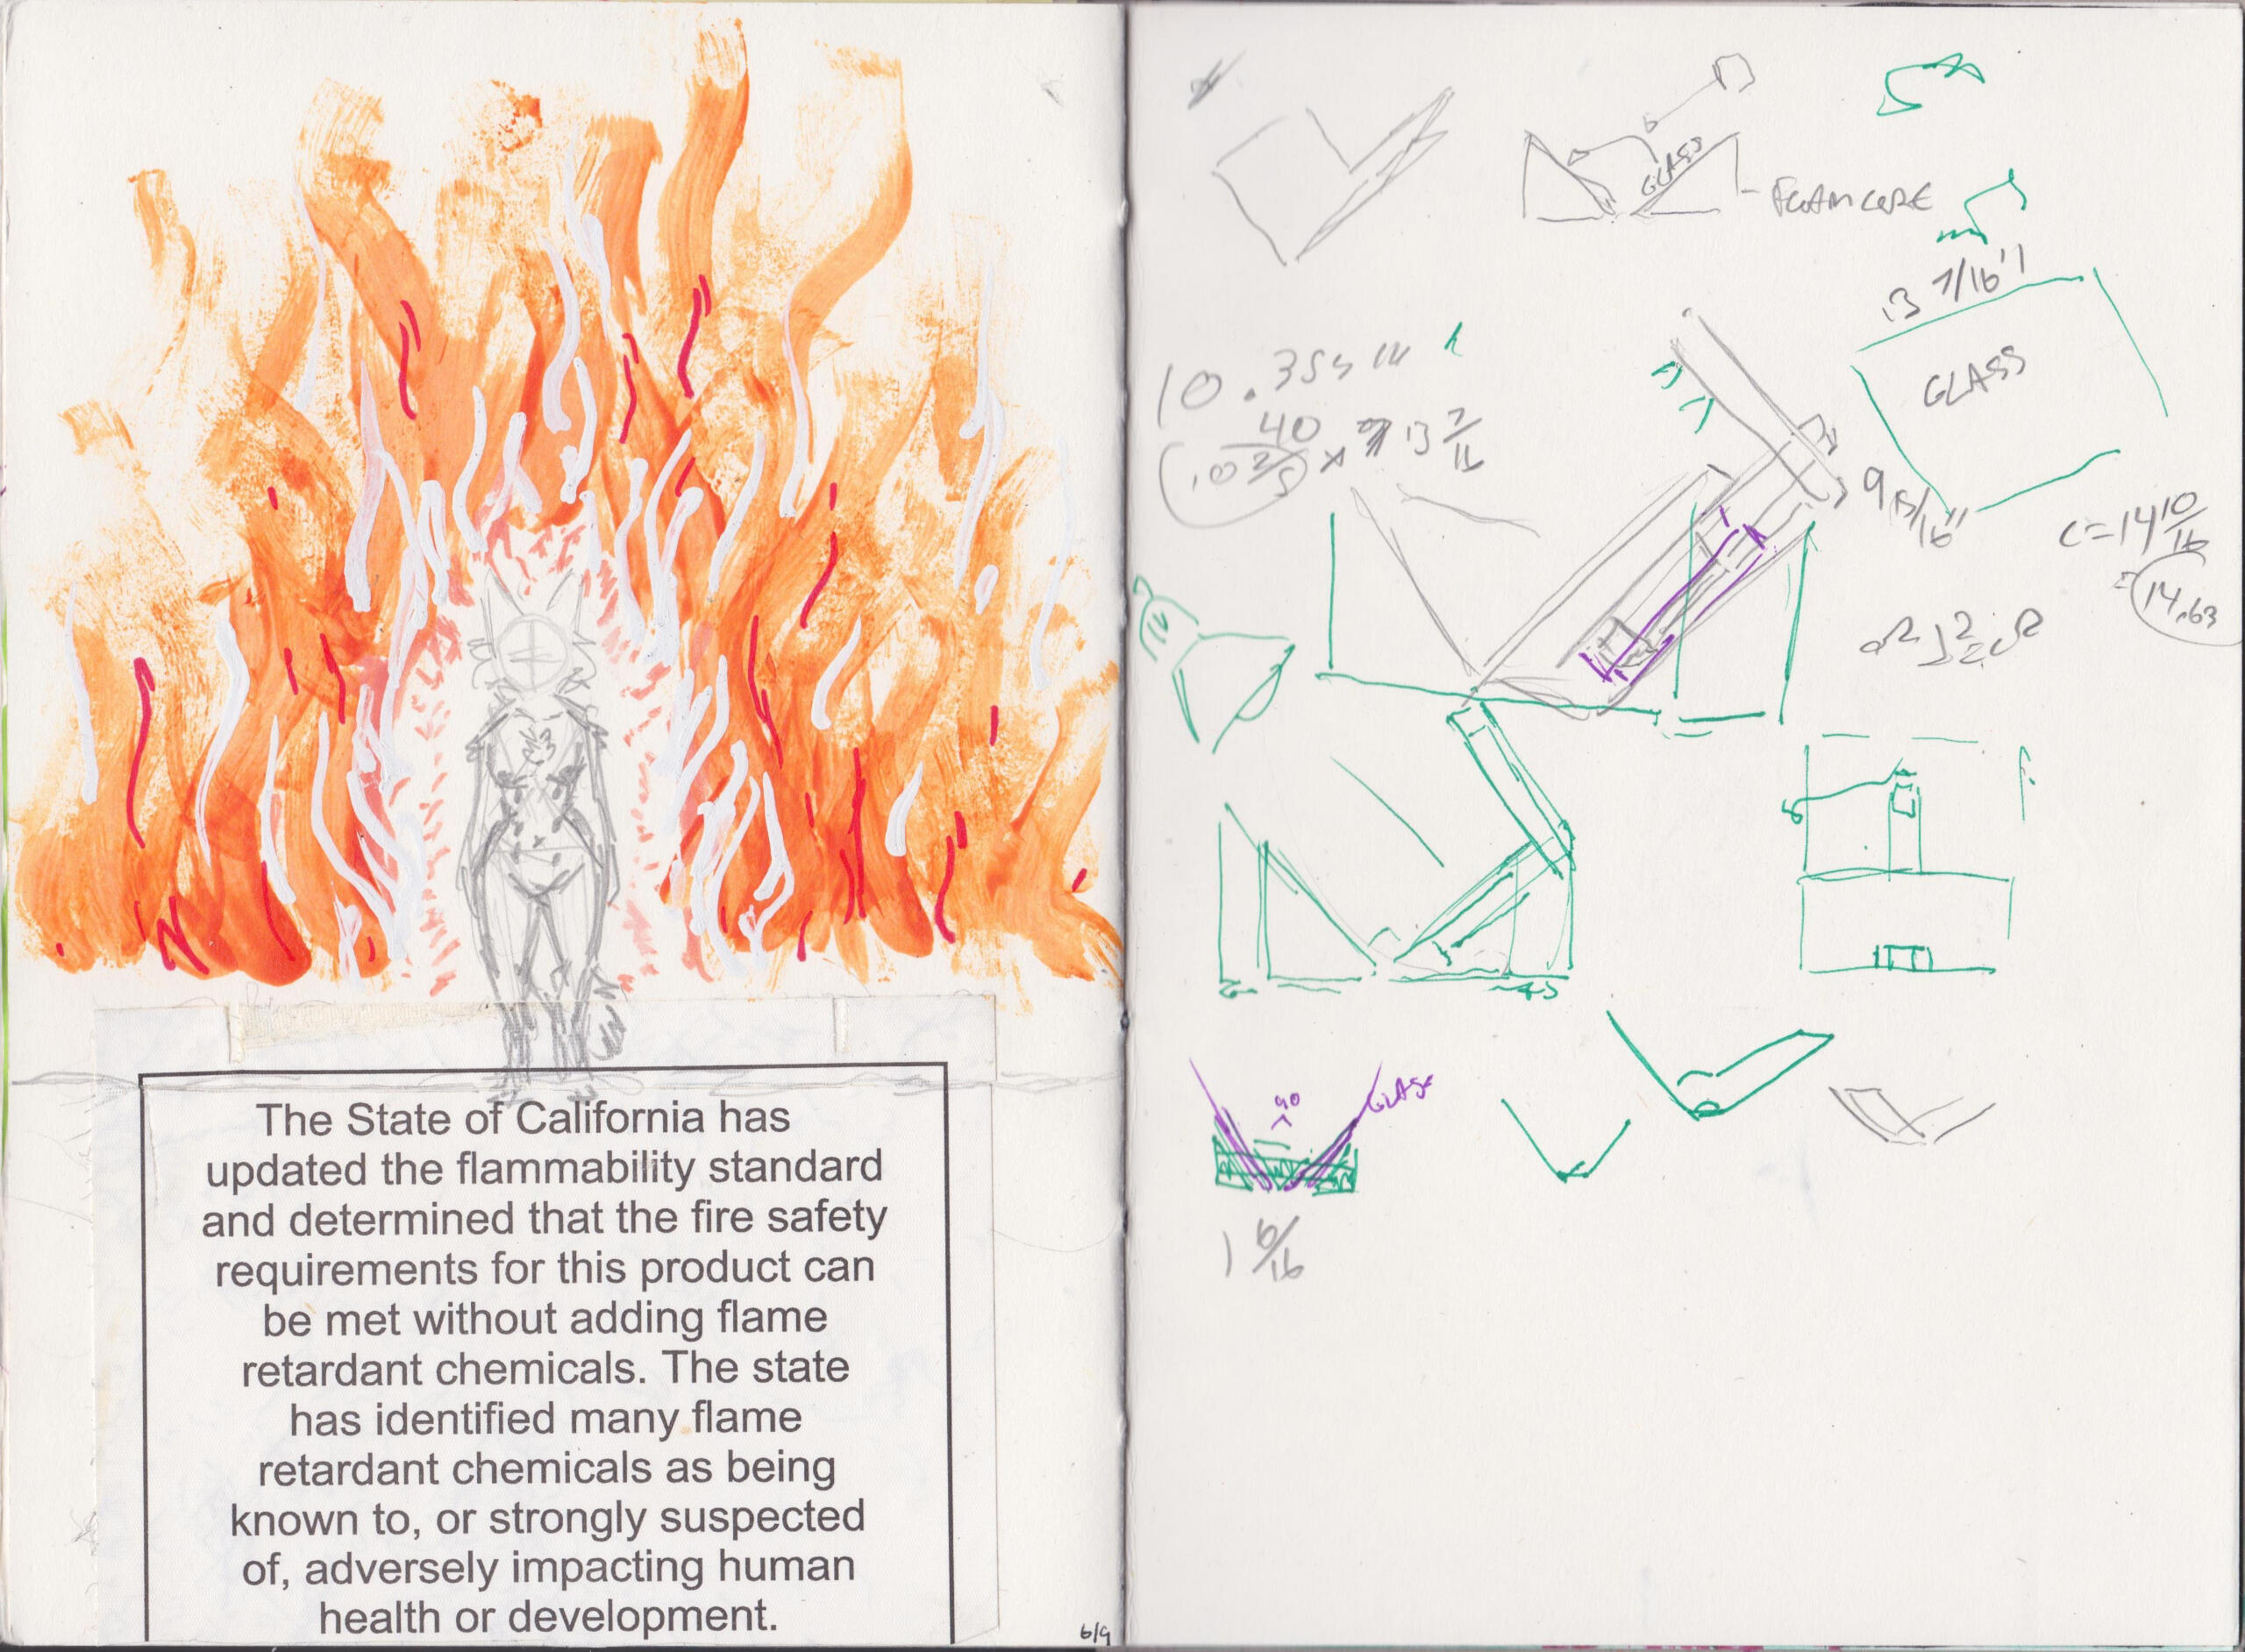 The State of California has
updated the flammability standard
and determined that the fire safety
requirements for this product can
be met without adding flame
retardant chemicals. The state
has identified many flame
retardant chemicals as being
known to, or strongly suspected
of, adversely impacting human
health or development.
6/9
GLASS
FOAM CORE
13 7/16"
GLASS
10.354 in
40
x 13 7/16
9 15/16"
c=14 10/16
=14.63
90
GLASS
1 6/16